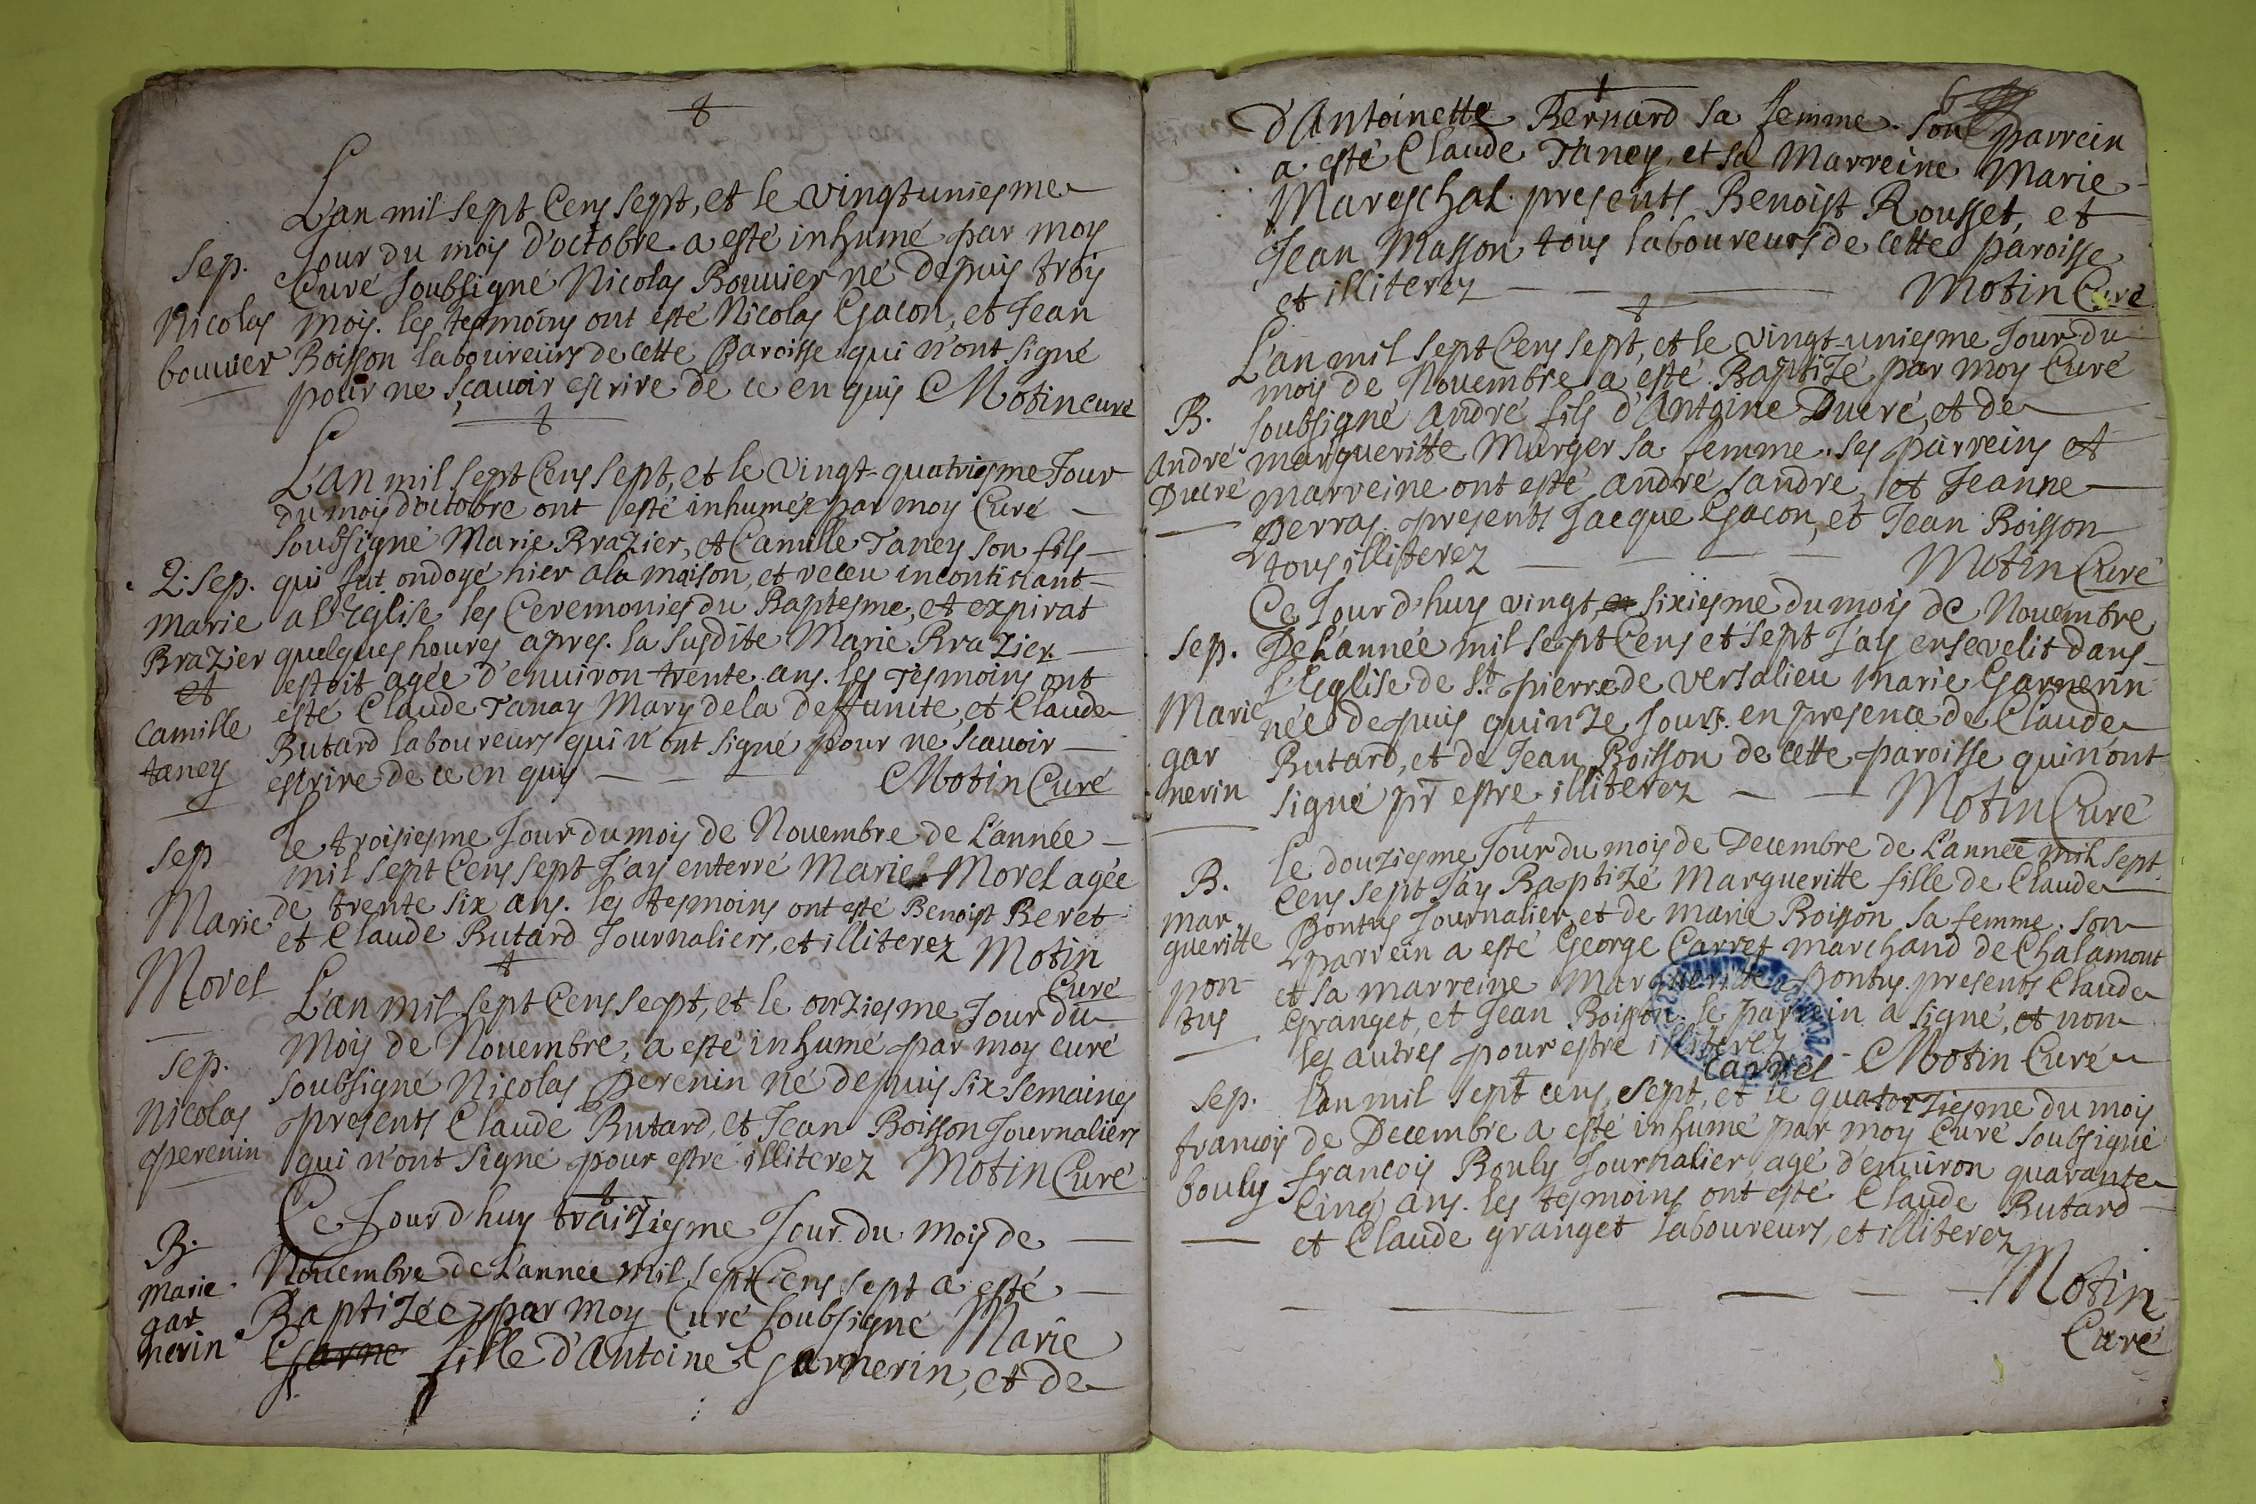 L'an mil sept Cens sept, et le vingtuniesme
Sep.
Jour du mois d'octobre a esté inhumé par moy
Curé soubsigné Nicolas Bouvier né depuis trois
Nicolas
mois. les tesmoins ont esté Nicolas Gacon, et Jean
bouvier
Boisson laboureurs de cette Paroisse qui n'ont signé
pour ne sçavoir escrire de ce en quis Motin curé
L'an mil sept Cens sept, et le vingt-quatriesme Jour
du mois d'octobre ont esté inhumez par moy Curé
soubsigné Marie Brazier, et Camille Taney son fils
2. Sep.
qui fut ondoyé hier a la maison, et receu incontinant
Marie
a l'Eglise les Ceremonies du Baptesme, et expirat
Brazier
quelques houres apres. la susdite Marie Brazier
et
estoit agée d'environ trente ans. les Tesmoins ont
Camille
esté Claude Tanay Mary de la deffunte, et Claude
taney
Butard laboureurs qui n'ont signé pour ne scavoir
escrire de ce en quis Motin Curé
Sep
le troisiesme Jour du mois de Novembre de L'année
mil sept Cens sept J'ay enterré Marie Morel agée
Marie
de trente six ans. les tesmoins ont esté Benoist Beret
Morel
et Claude Butard Journaliers, et illiterez Motin
Curé
L'an mil sept Cens sept, et le onziesme Jour du
Sep.
Mois de Novembre, a esté inhumé par moy curé
Nicolas
soubsigné Nicolas Perenin né depuis six semaines
perenin
presents Claude Butard, et Jean Boisson Journaliers
qui n'ont signé pour estre illiterez Motin Curé
Ce Jourd'huy traiziesme Jour du mois de
B.
Novembre de L'année mil sept Cens sept a esté
Marie
gar
Baptizée par moy Curé soubsigné Marie
nerin
Garne fille d'Antoine Garnerin, et de
6
d'Antoinette Bernard sa femme. son parrein
a esté Claude Taney, et sa Marreine Marie
Mareschal. presents Benoist Rousset, et
Jean Masson tous laboureurs de cette paroisse
et illiterez Motin Curé
L'an mil sept Cens sept, et le vingt-uniesme Jour du
mois de Novembre a esté Baptizé par moy Curé
B.
soubsigné André fils d'Antoine Ducré, et de
André
margueritte Murger sa femme. ses parreins et
Ducré
marreine ont esté André Sandre, et Jeanne
Perras. presents Jacque Gacon, et Jean Boisson
tous illiterez Motin Curé
Ce Jourd'huy vingt, et sixiesme du mois de Novembre
Sep.
De L'année mil sept Cens et sept J'ay ensevelit dans
l'Eglise de St. pierre de Versalieu Marie Garnerin
Marie
née depuis quinze Jours. en presence de Claude
gar
Butard, et de Jean Boisson de cette paroisse qui n'ont
nerin
signé pr estre illiterez Motin Curé
le douziesme Jour du mois de Decembre de L'année mil sept
B.
Cens sept J'ay Baptizé Margueritte fille de Claude
mar
Pontus Journalier, et de Marie Boisson sa femme. son
gueritte
parrein a esté George Carrel marchand de Chalamont
pon
et sa marreine Margueritte Pontus. presents Claude
tus
Granget, et Jean Boisson. le parrein a signé, et non
les autres pour estre illiterez
Carrel Motin Curé
Sep.
L'an mil sept cens, sept, et le quatorziesme du mois
francois
de Decembre a esté inhumé par moy Curé soubsigné
bouly
francois Bouly Journalier agé d'environ quarante
Cinq ans. les tesmoins ont esté Claude Butard
et Claude granget laboureurs, et illiterez
Motin
Curé